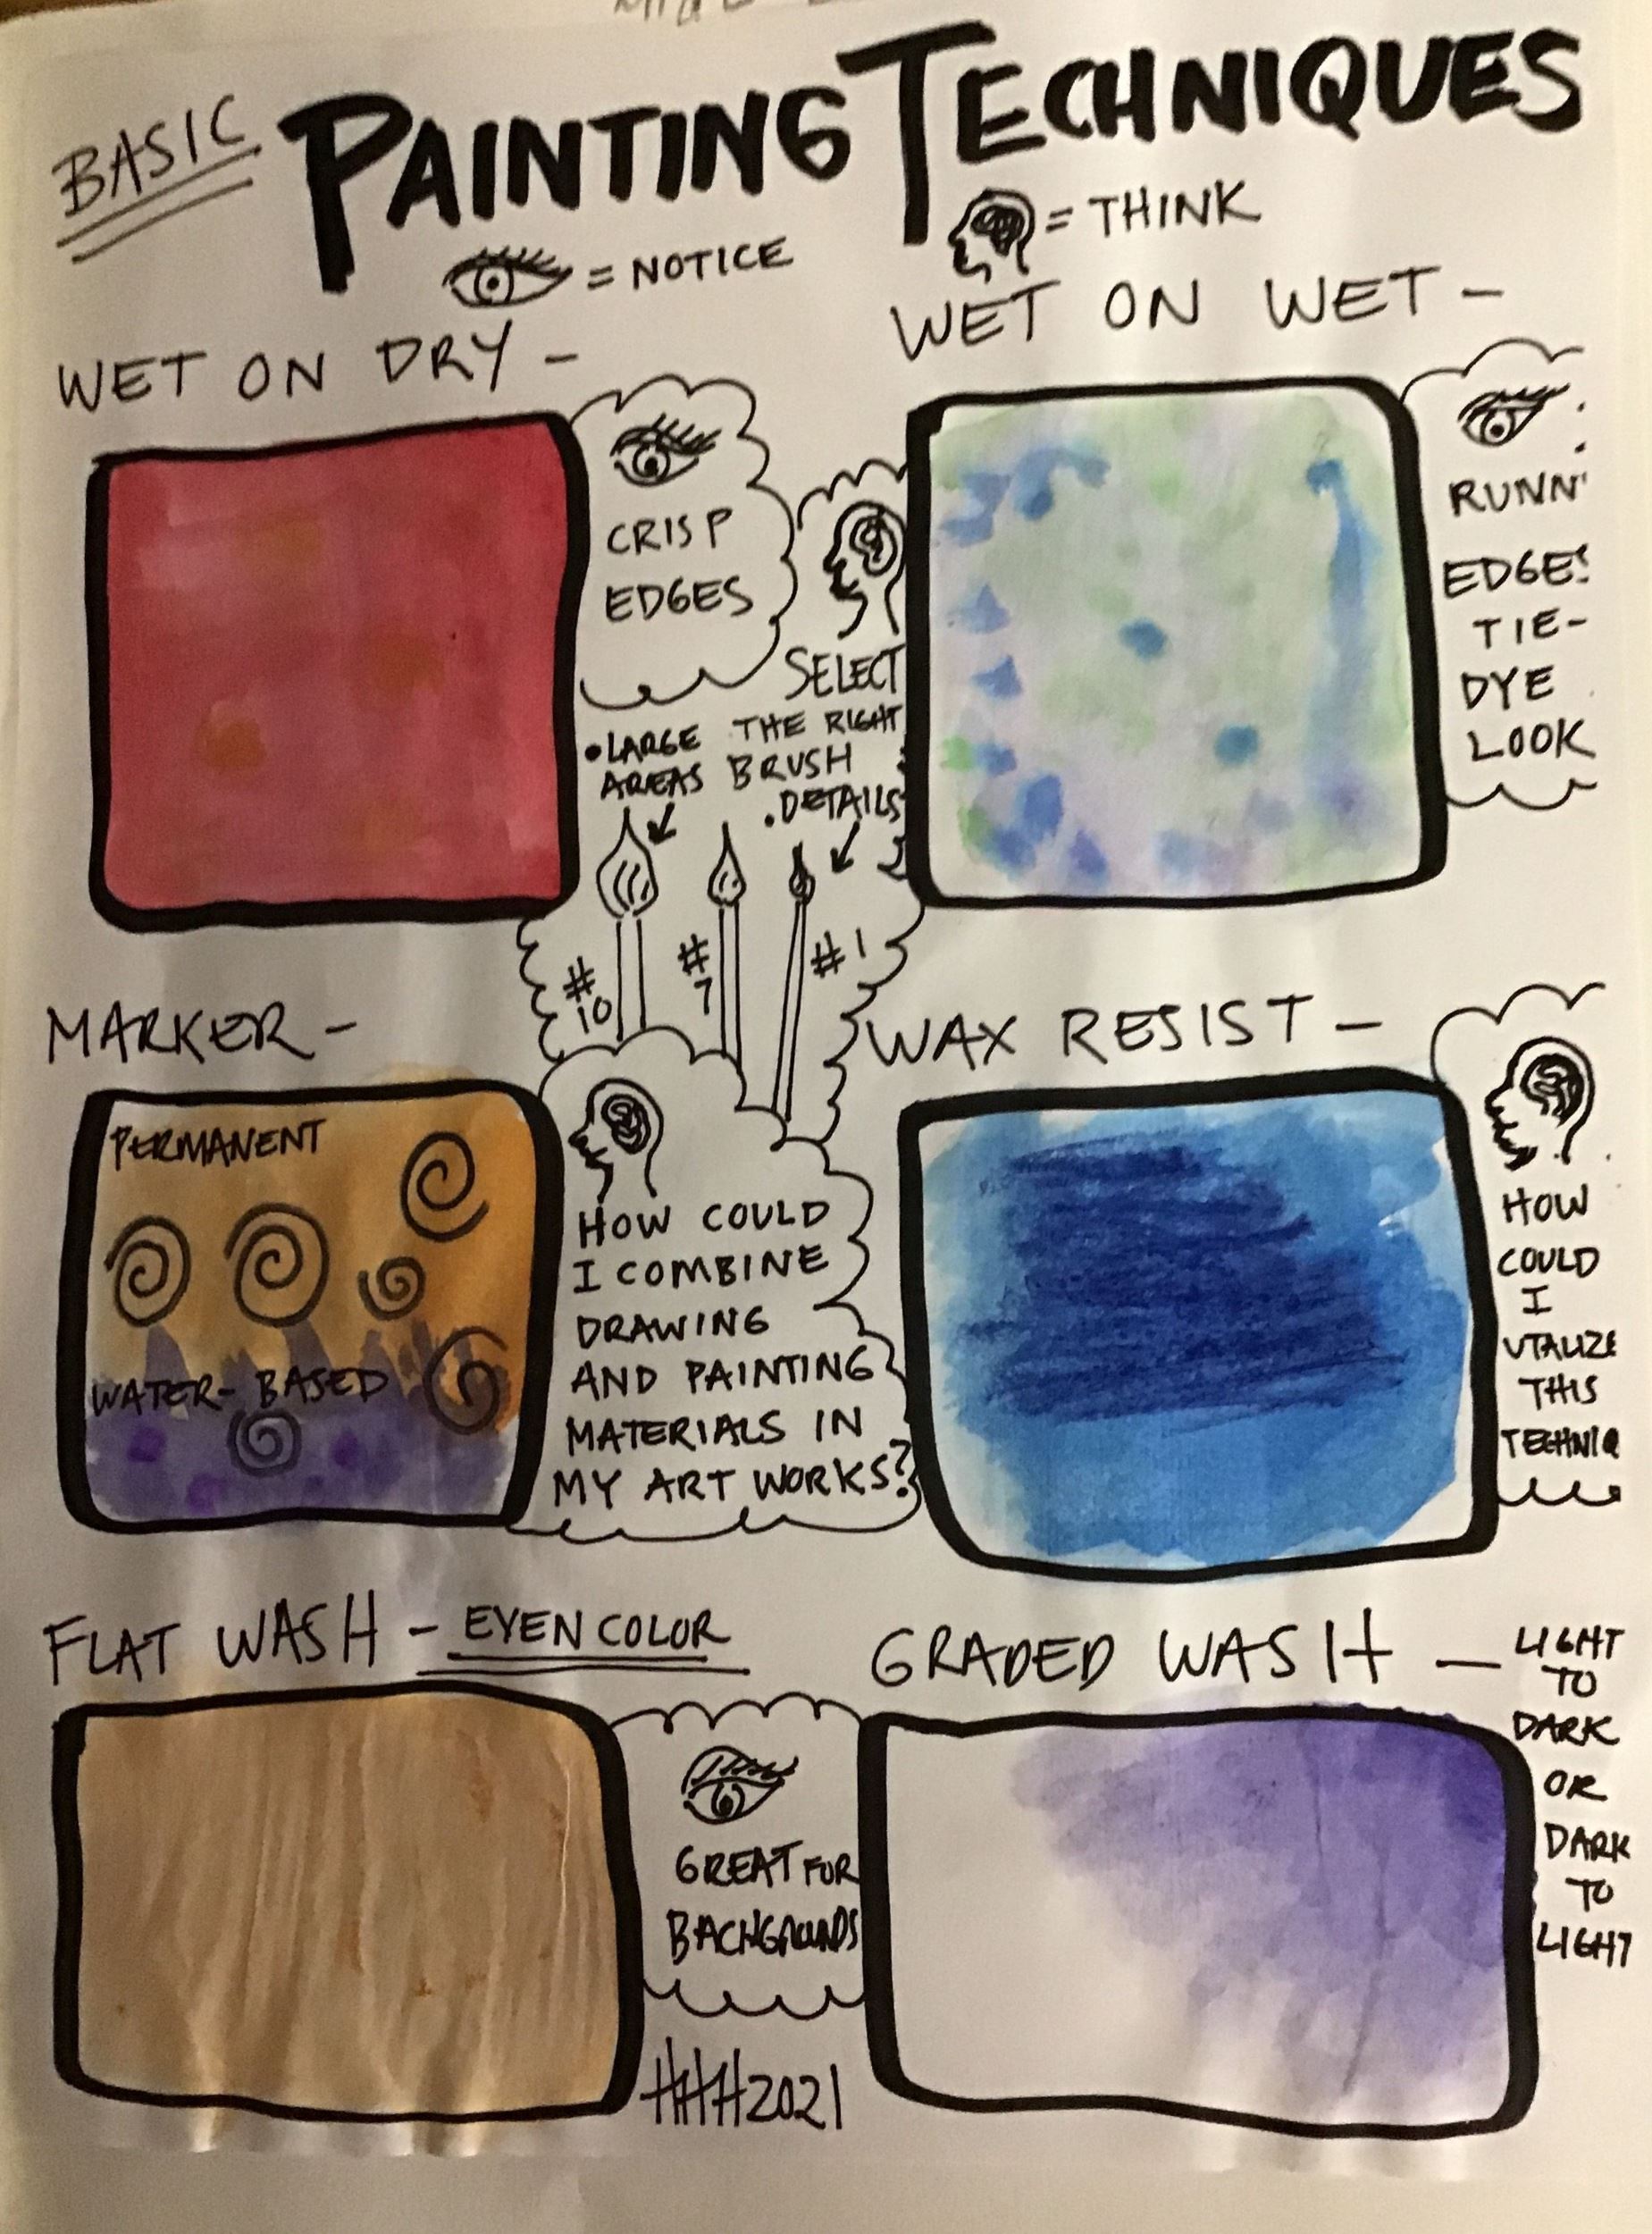 BASIC PAINTING TECHNIQUES
= NOTICE
= THINK
WET ON DRY -
CRISP
EDGES
WET ON WET -
RUNN
EDGES
TIE-
DYE
LOOK
SELECT
THE RIGHT
BRUSH
• LARGE
AREAS
. DETAILS
#10
#7
#1
MARKER -
PERMANENT
WATER-BASED
HOW COULD
I COMBINE
DRAWING
AND PAINTING
MATERIALS IN
MY ART WORKS?
WAX RESIST -
HOW
COULD
I
UTALIZE
THIS
TECHNIQ
FLAT WASH - EVEN COLOR
GREAT FOR
BACHGROUNDS
GRADED WASH —
LIGHT
TO
DARK
OR
DARK
TO
LIGHT
HHH2021